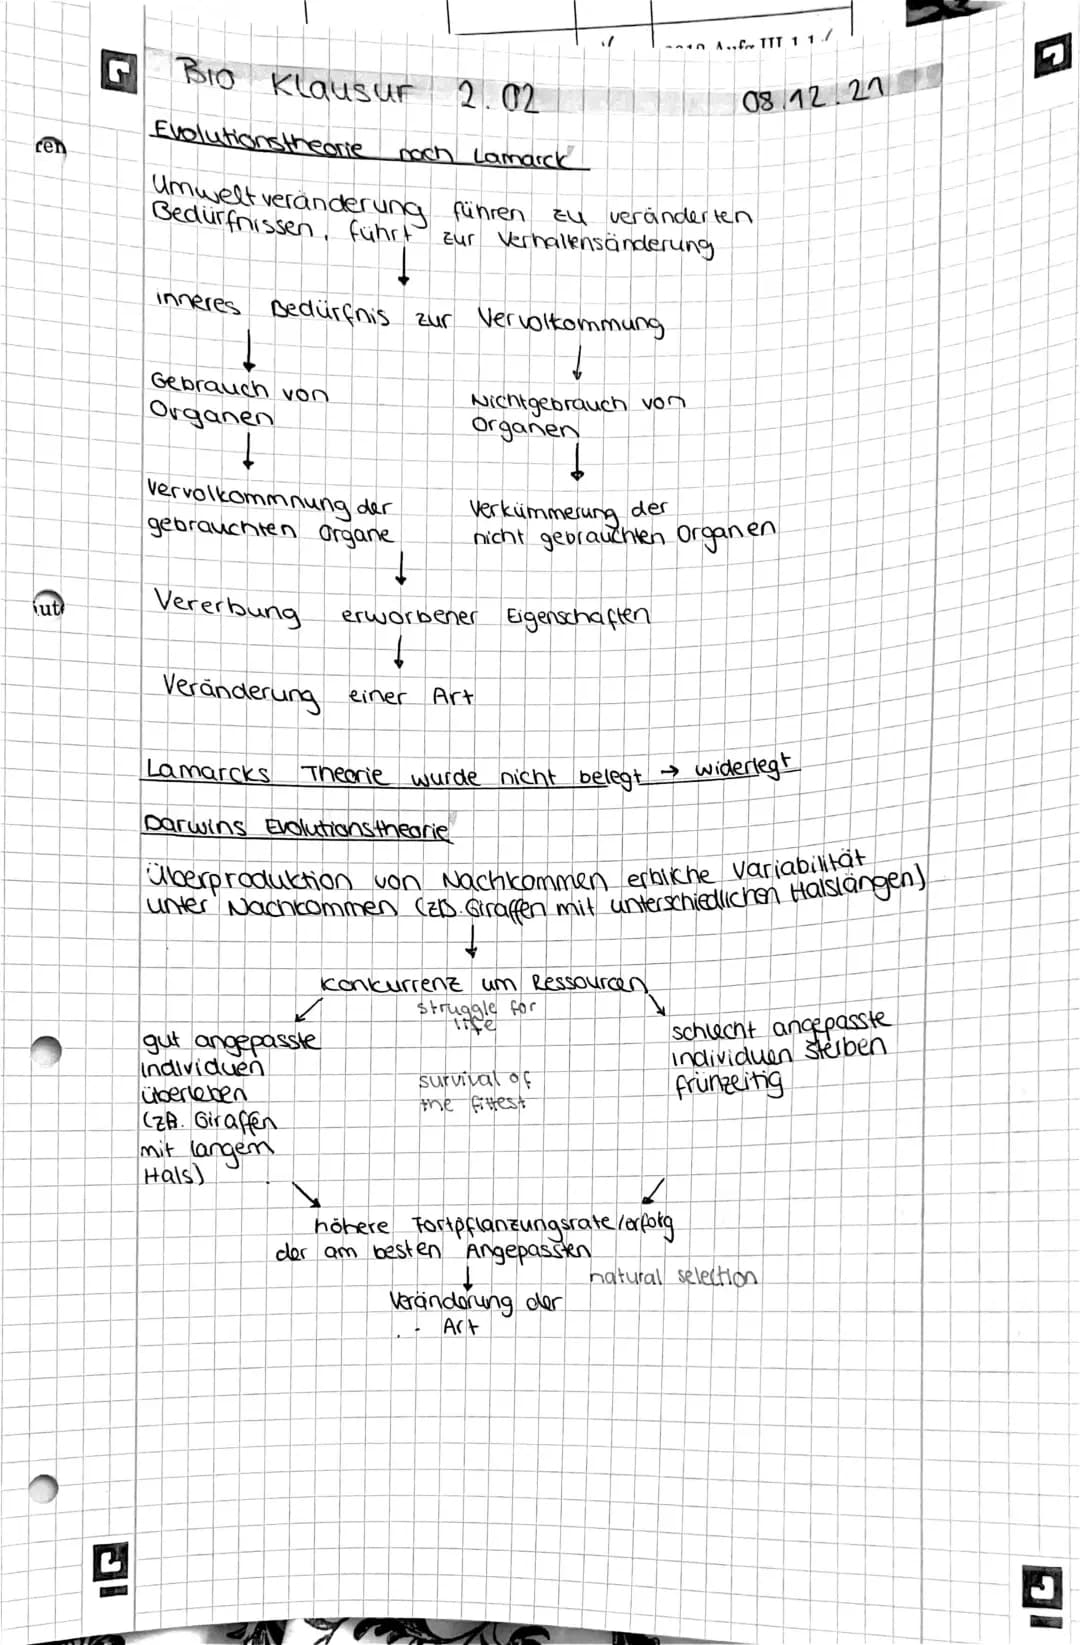 III 1 1
Bio Klausur 2.02 08.12.21
ren
Evolutionstheorie nach Lamarck
Umweltveränderung führen zu veränderten
Bedürfnissen, führt zur Verhaltensänderung
↓
inneres Bedürfnis zur Vervolkommung
↓ ↓
Gebrauch von
Organen
Nichtgebrauch von
Organen
↓ ↓
Vervolkommnung der
gebrauchten Organe
Verkümmerung der
nicht gebrauchten Organen
↓
iut
Vererbung erworbener Eigenschaften
↓
Veränderung einer Art
Lamarcks Theorie wurde nicht belegt → widerlegt
Darwins Evolutionstheorie
Überproduktion von Nachkommen erbliche Variabilität
unter Nachkommen (zB. Giraffen mit unterschiedlichen Halslängen)
↓
Konkurrenz um Ressourcen
struggle for
life
gut angepasste
individuen
überleben
(zB. Giraffen
mit langem
Hals)
survival of
the fittest
schlecht angepasste
individuen sterben
frühzeitig
höhere Fortpflanzungsrate/erfolg
der am besten Angepassten
↓
natural selection
Veränderung der
Art